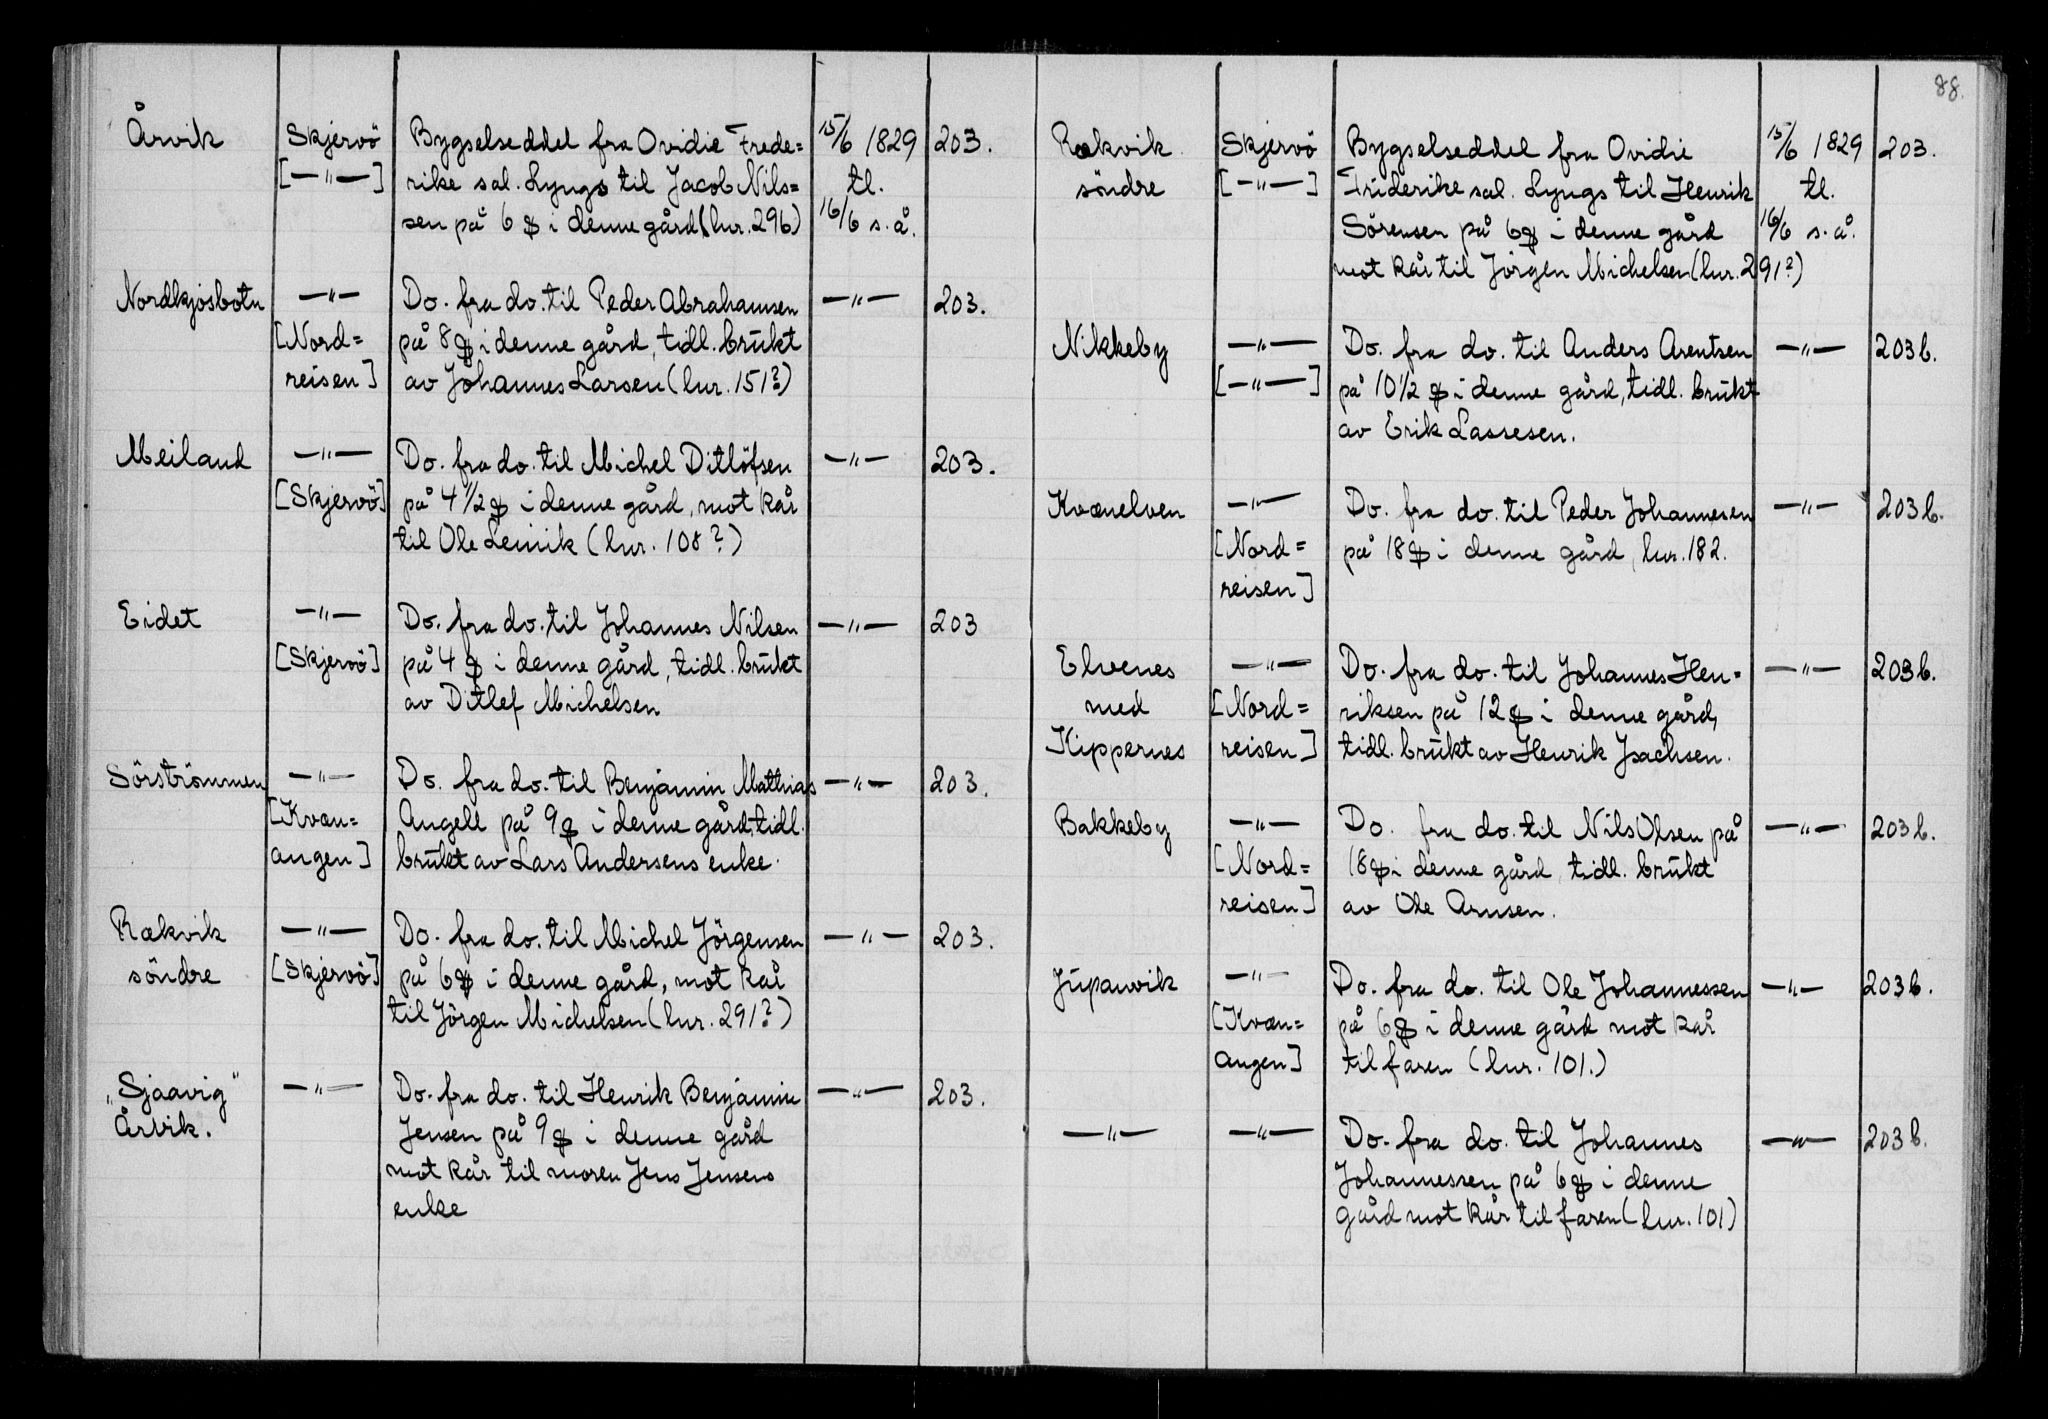 88.
Årvik
Skjervö
[—"—]
Bygselseddel fra Ovidie Frede=
rike sal. Lyngs til Jacob Nils=
sen på 6 ꝏ i denne gård (lnr. 296)
15/6 1829
tl.
16/6 s.å.
203.
Nordkjosbotn
—"—
[Nord=
reisen]
Do. fra do. til Peder Abrahamsen
på 8 ꝏ i denne gård, tidl. brukt
av Johannes Larsen (lnr. 151?)
—"—
203.
Meiland
—"—
[Skjervö]
Do. fra do. til Michel Ditlöfsen
på 4 1/2 ꝏ i denne gård, mot kår
til Ole Leinik (lnr. 108?)
—"—
203.
Eidet
—"—
[Skjervö]
Do. fra do. til Johannes Nilsen
på 4 ꝏ i denne gård, tidl. brukt
av Ditlef Michelsen
—"—
203
Sörströmmen
—"—
[Kvæn=
angen]
Do. fra do. til Benjamin Matthias
Angell på 9 ꝏ i denne gård, tidl.
brukt av Lars Andersens enke.
—"—
203.
Rækvik
söndre
—"—
[Skjervö]
Do. fra do. til Michel Jörgensen
på 6 ꝏ i denne gård, mot kår
til Jörgen Michelsen (lnr. 291?)
—"—
203.
„Sjaavig"
Årvik.
—"—
Do. fra do. til Henrik Benjamin
Jensen på 9 ꝏ i denne gård
mot kår til moren Jens Jensens
enke
—"—
203.
Rækvik
söndre
Skjervö
[—"—]
Bygselseddel fra Ovidie
Friderike sal. Lyngs til Henrik
Sörensen på 6 ꝏ i denne gård
mot kår til Jörgen Michelsen (lnr. 291?)
15/6 1829
tl.
16/6 s.å.
203.
Nikkeby
—"—
[—"—]
Do. fra do. til Anders Arentsen
på 10 1/2 ꝏ i denne gård, tidl. brukt
av Erik Lassesen.
—"—
203b.
Kvænelven
—"—
[Nord=
reisen]
Do. fra do. til Peder Johannesen
på 18 ꝏ i denne gård, lnr. 182.
—"—
203b.
Elvenes
med
Kippernes
—"—
[Nord=
reisen]
Do. fra do. til Johannes Hen=
riksen på 12 ꝏ i denne gård,
tidl. brukt av Henrik Isachsen.
—"—
203b.
Bakkeby
—"—
[Nord=
reisen]
Do. fra do. til Nils Olsen på
18 ꝏ i denne gård, tidl. brukt
av Ole Arnsen.
—"—
203b.
Jupanvik
—"—
[Kvæn=
angen]
Do. fra do. til Ole Johannessen
på 6 ꝏ i denne gård mot kår
til faren (lnr. 101.)
—"—
203b.
—"—
—"—
Do. fra do. til Johannes
Johannessen på 6 ꝏ i denne
gård mot kår til faren (lnr. 101)
—"—
203b.